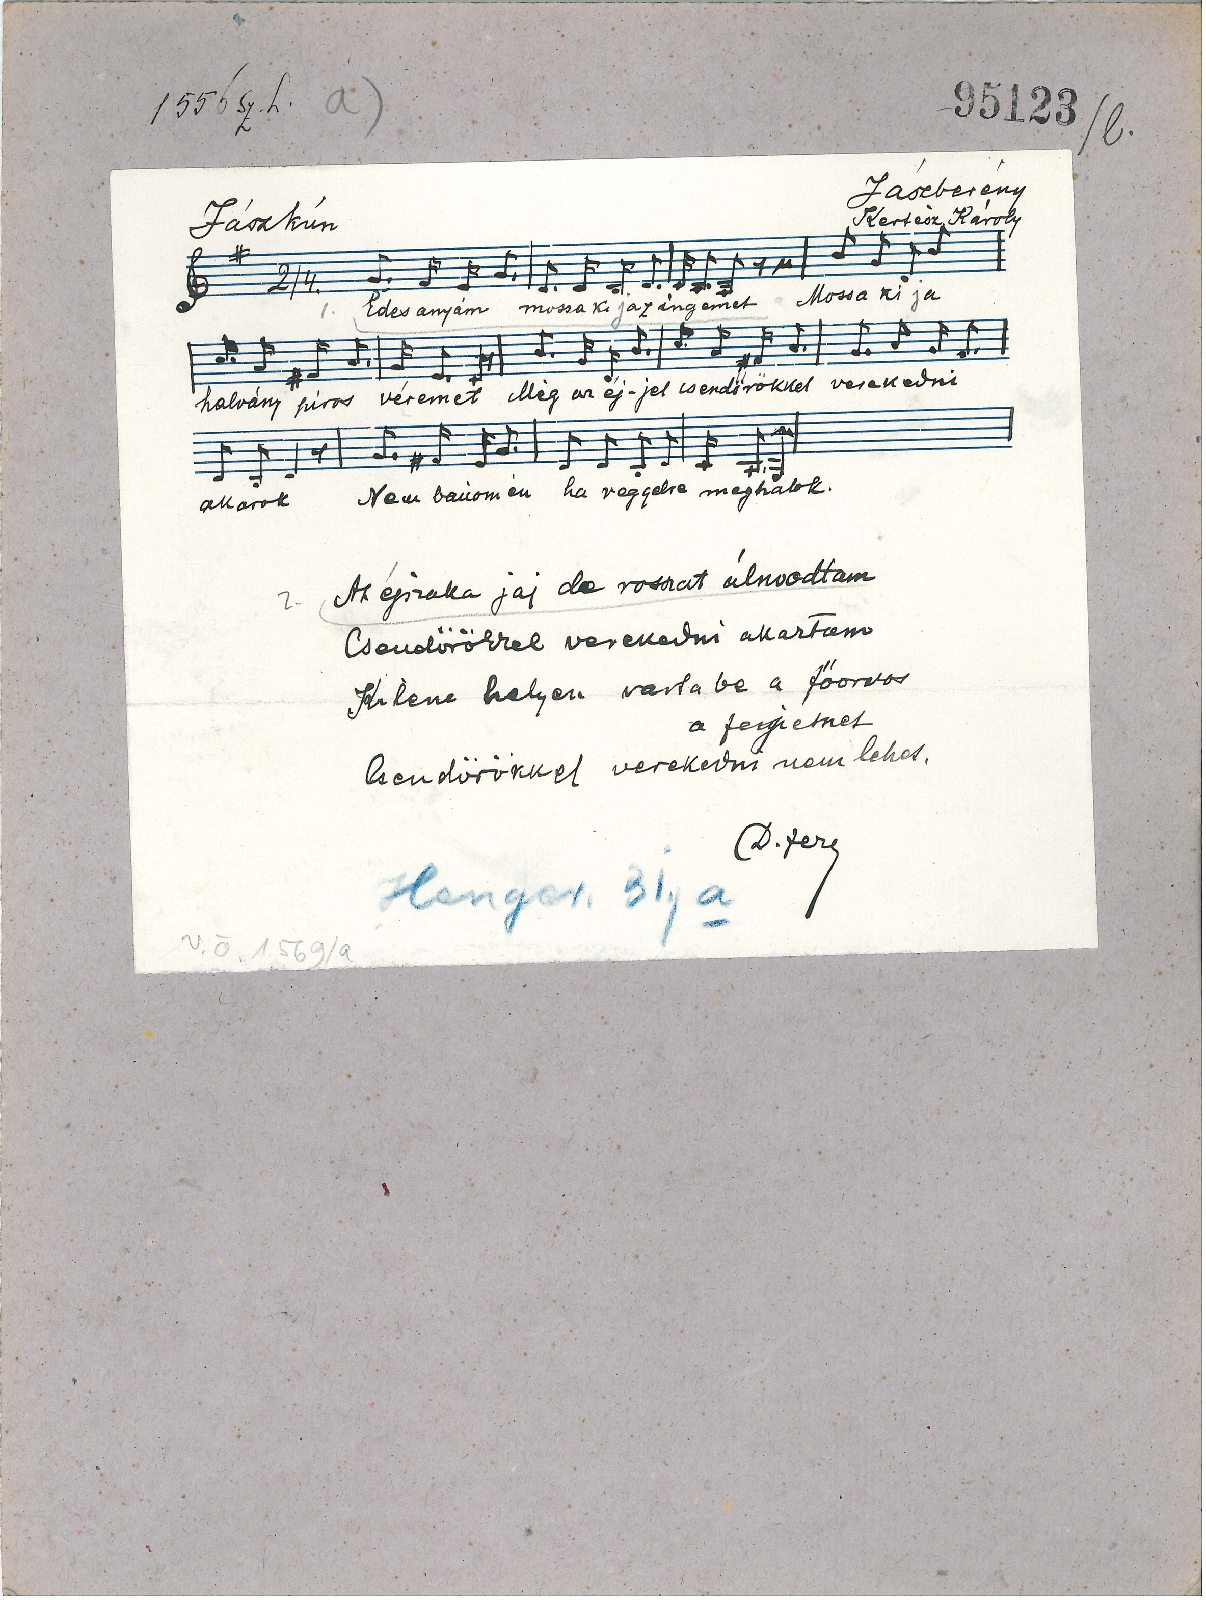 1556 sz. h. a)
95123/l.
Jászkún
Jászberény
Kertész Károly
2/4.
1. Édesanyám mossa ki jaz ingemet Mossa ki ja
halvány piros véremet Még az éj-jel csendörökkel verekedni
akarok Nem bánom én ha reggelre meghalok.
2. Az éjszaka jaj de rosszat álmodtam
Csendörökkel verekedni akartam
Kilenc helyen varta be a főorvos
a fejjemet
Csendörökkel verekedni nem lehet.
D. fery
Henger. 31, a
V. ö. 1569/a